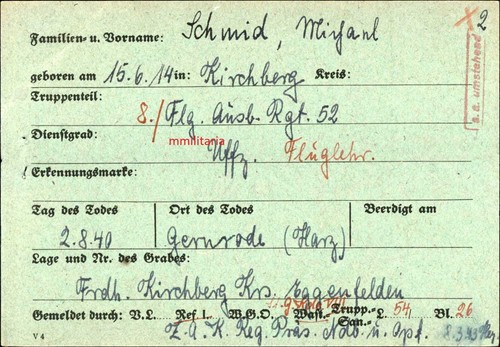 Familien- u. Vorname: Schmid, Michael 2
geboren am 15.6.14 in: Kirchberg Kreis:
s.a. umstehend
Truppenteil:
8./Flg. Ausb. Rgt. 52
Dienstgrad:
mmilitaria
Uffz. Fluglehr.
Erkennungsmarke:
Tag des Todes Ort des Todes Beerdigt am
2.8.40 Gernrode (Harz)
Lage und Nr. des Grabes:
Frdh. Kirchberg Krs. Eggenfelden
Gemeldet durch: V.L. Ref. I. W.G.O. Wast.- Trupp.- San.- L. 54 Bl. 26
Z.A.K. Reg. Präs. Ndb. u. Opf.
V 4